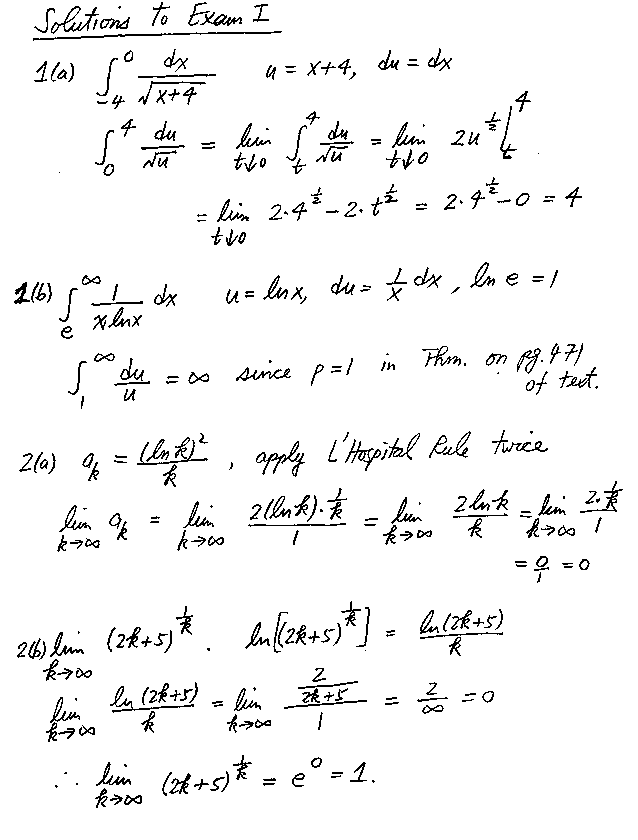 Solutions to Exam I
1(a) ∫_{-4}^{0} dx/√(x+4)   u = x+4, du = dx
∫_{0}^{4} du/√u = lim_{t↓0} ∫_{t}^{4} du/√u = lim_{t↓0} 2u^{1/2} |_{t}^{4}
= lim_{t↓0} 2·4^{1/2} − 2·t^{1/2} = 2·4^{1/2} − 0 = 4
1(b) ∫_{e}^{∞} 1/(x ln x) dx   u = ln x, du = 1/x dx, ln e = 1
∫_{1}^{∞} du/u = ∞ since p = 1 in Thm. on pg. 471
of text.
2(a) a_k = (ln k)²/k, apply L'Hospital Rule twice
lim_{k→∞} a_k = lim_{k→∞} (2(ln k)·1/k)/1 = lim_{k→∞} (2 ln k)/k = lim_{k→∞} (2·1/k)/1
= 0/1 = 0
2(b) lim_{k→∞} (2k+5)^{1/k}.   ln[(2k+5)^{1/k}] = ln(2k+5)/k
lim_{k→∞} ln(2k+5)/k = lim_{k→∞} (2/(2k+5))/1 = 2/∞ = 0
∴ lim_{k→∞} (2k+5)^{1/k} = e^0 = 1.